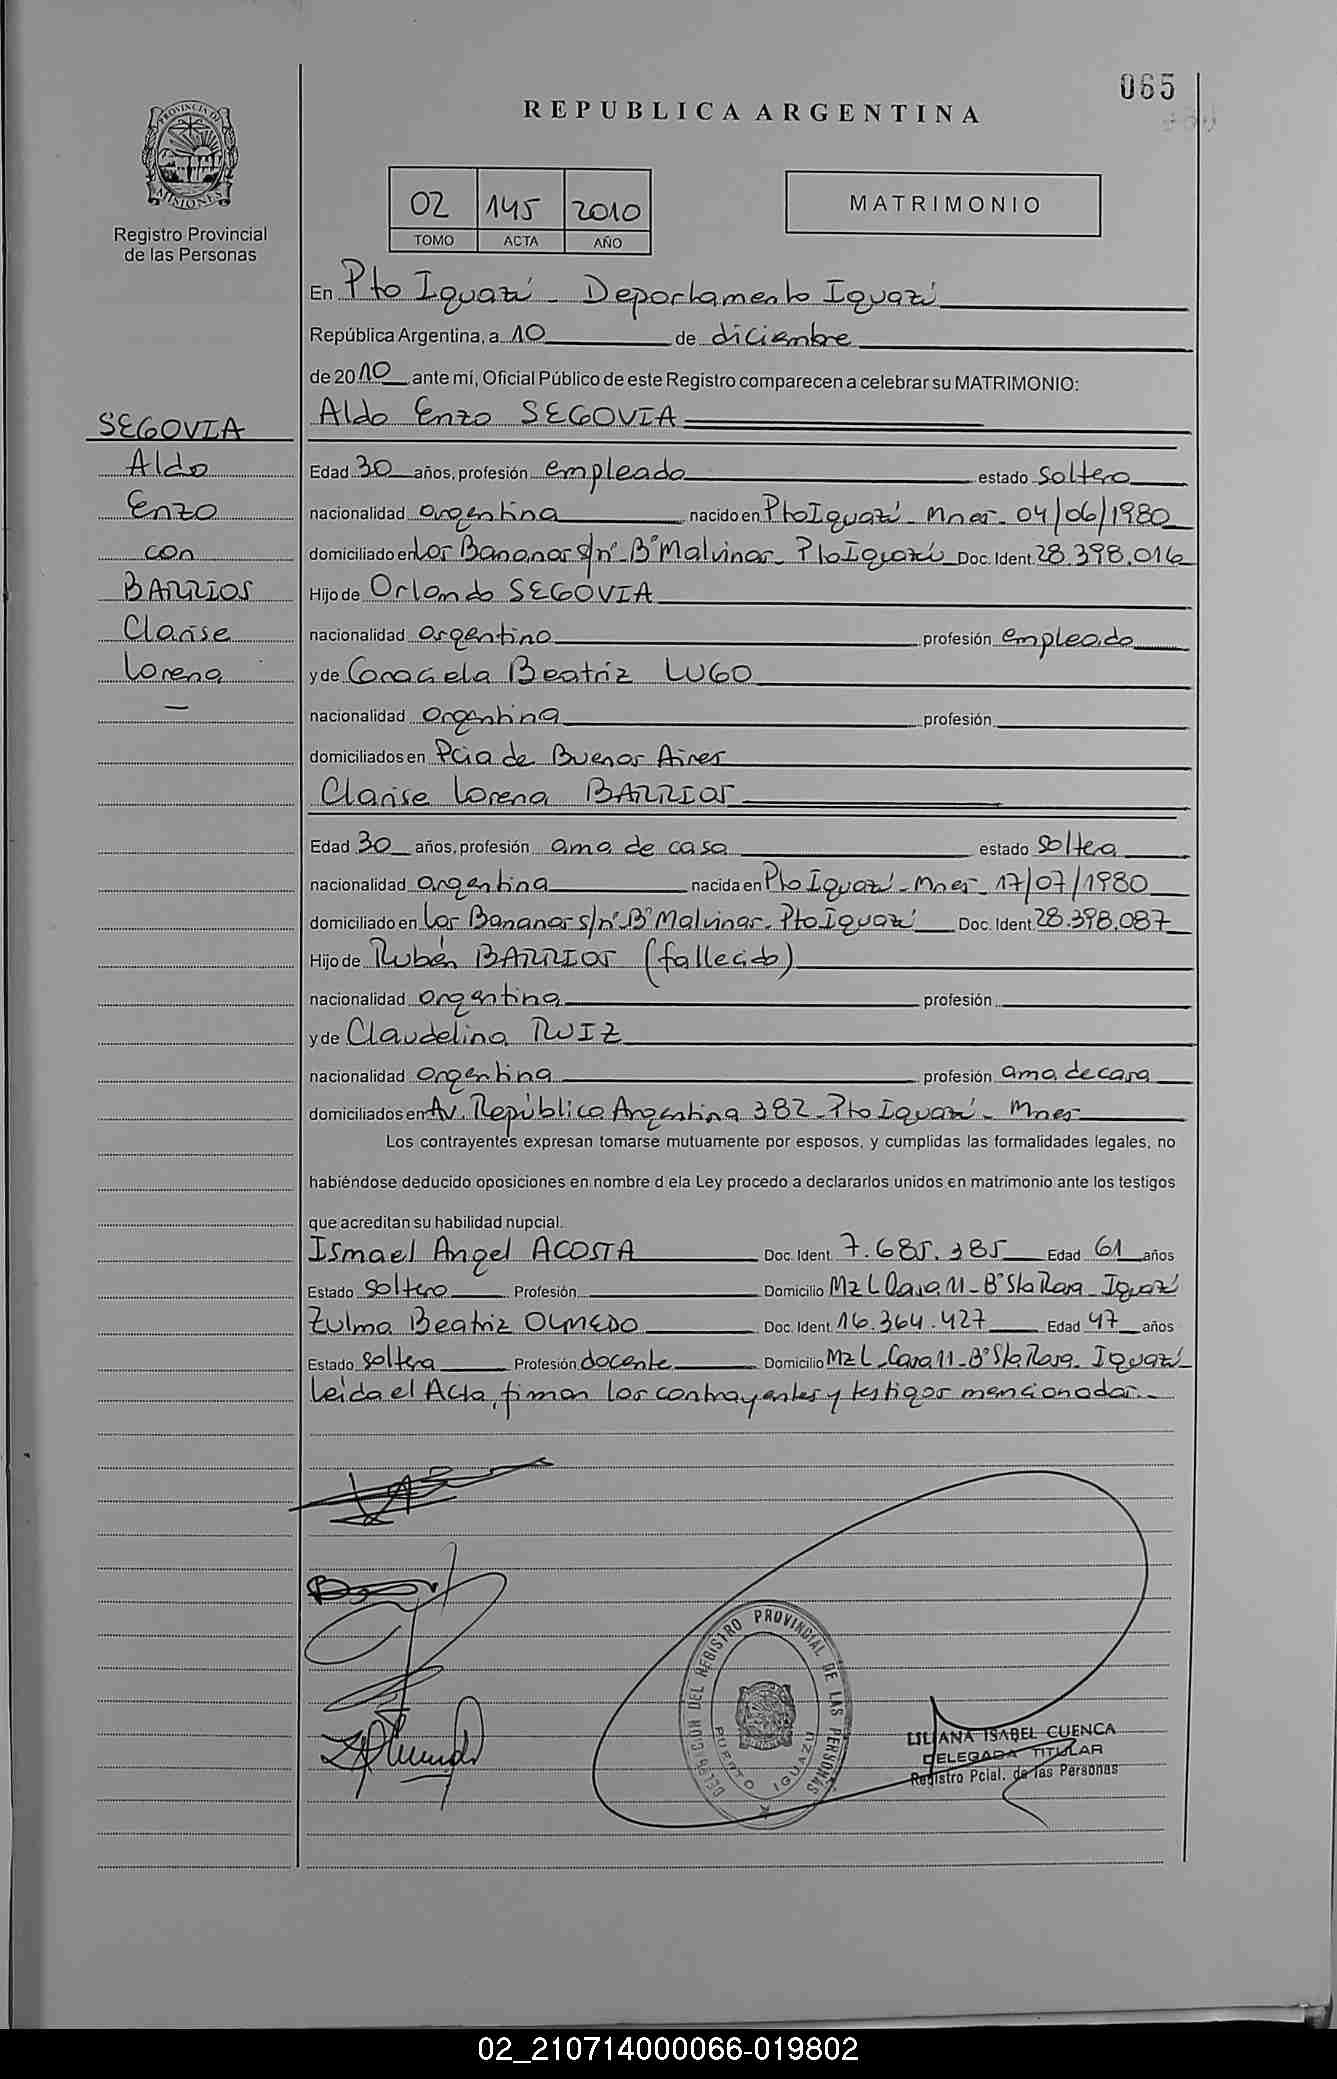 065
REPUBLICA ARGENTINA
PROVINCIA DE MISIONES
Registro Provincial
de las Personas
02 145 2010
TOMO ACTA AÑO
MATRIMONIO
En Pto Iguazú - Departamento Iguazú
República Argentina, a 10 de diciembre
de 2010 ante mí, Oficial Público de este Registro comparecen a celebrar su MATRIMONIO:
SEGOVIA
Aldo
Enzo
con
BARRIOS
Clarise
Lorena
Aldo Enzo SEGOVIA
Edad 30 años, profesión empleado estado soltero
nacionalidad argentina nacido en Pto Iguazú - Mnes - 04/06/1980
domiciliado en Los Bananos s/nº - Bº Malvinas - Pto Iguazú Doc. Ident. 28.398.016
Hijo de Orlando SEGOVIA
nacionalidad argentino profesión empleado
y de Graciela Beatriz LUGO
nacionalidad argentina profesión
domiciliados en Pcia de Buenos Aires
Clarise Lorena BARRIOS
Edad 30 años, profesión ama de casa estado soltera
nacionalidad argentina nacida en Pto Iguazú - Mnes - 17/07/1980
domiciliado en Los Bananos s/nº Bº Malvinas - Pto Iguazú Doc. Ident. 28.398.087
Hijo de Rubén BARRIOS (fallecido)
nacionalidad argentina profesión
y de Claudelina RUIZ
nacionalidad argentina profesión ama de casa
domiciliados en Av. República Argentina 382 - Pto Iguazú - Mnes
Los contrayentes expresan tomarse mutuamente por esposos, y cumplidas las formalidades legales, no
habiéndose deducido oposiciones en nombre d ela Ley procedo a declararlos unidos en matrimonio ante los testigos
que acreditan su habilidad nupcial.
Ismael Angel ACOSTA Doc. Ident. 7.685.385 Edad 61 años
Estado soltero Profesión Domicilio Mz L Casa 11 - Bº Sta Rosa - Iguazú
Zulma Beatriz OLMEDO Doc. Ident. 16.364.427 Edad 47 años
Estado soltera Profesión docente Domicilio Mz L - Casa 11 - Bº Sta Rosa - Iguazú
Leída el Acta, firman los contrayentes y testigos mencionados.-
DELEGACION DEL REGISTRO PROVINCIAL DE LAS PERSONAS
PUERTO IGUAZU
LILIANA ISABEL CUENCA
DELEGADA TITULAR
Registro Pcial. de las Personas
02_210714000066-019802